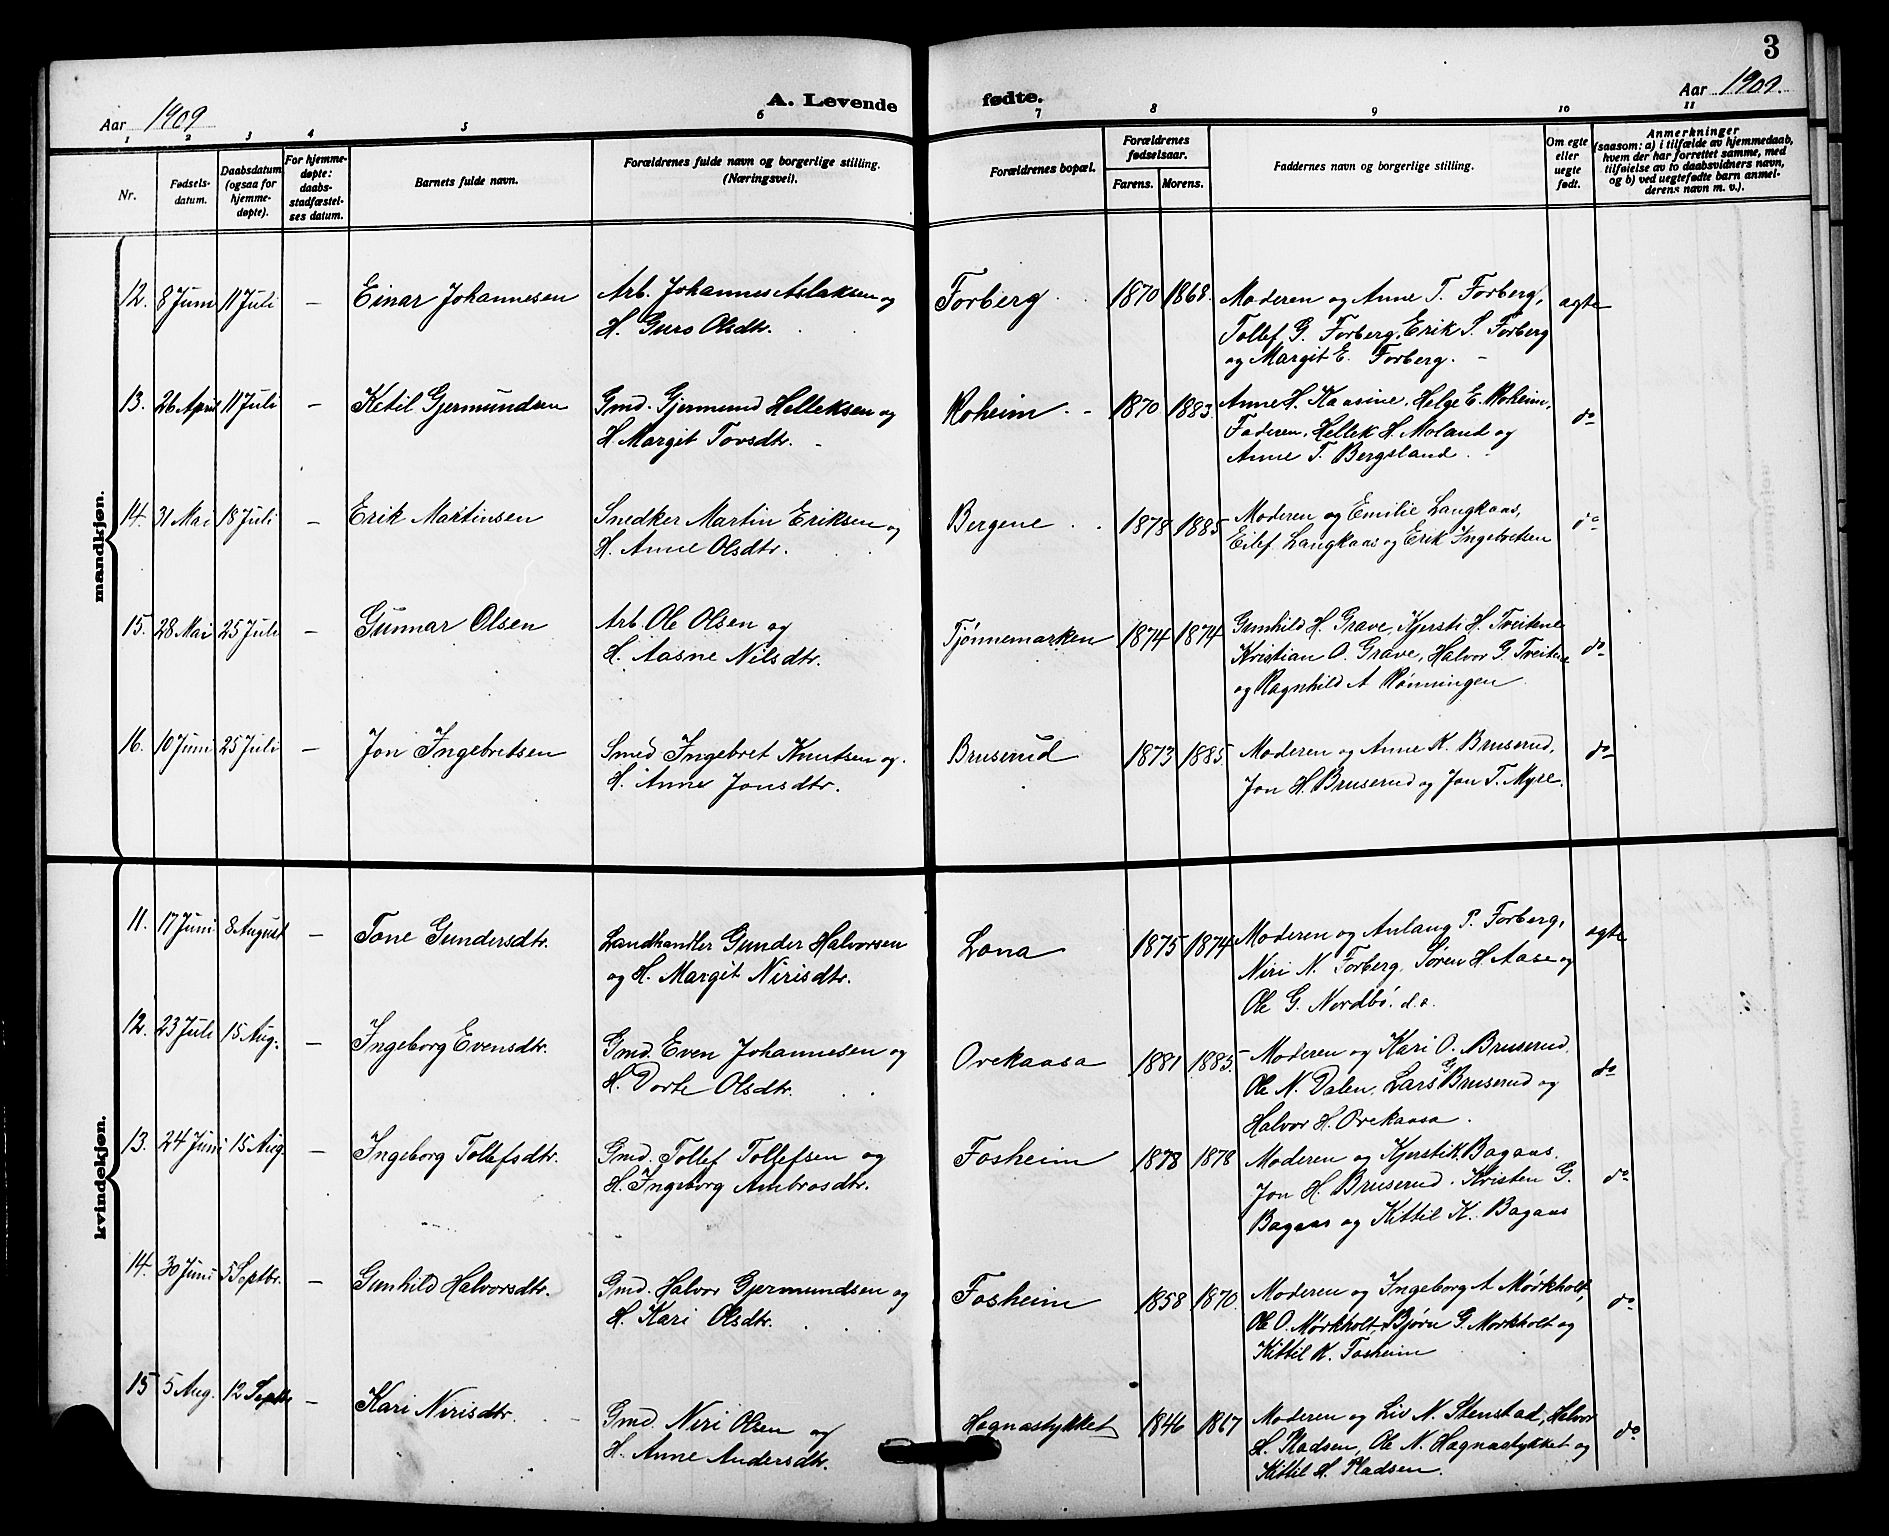 3
Aar 1909
A. Levende fødte.
Aar 1909.
1 2 3 4 5 6 7 8 9 10 11
Nr.
Fødsels-
datum.
Daabsdatum
(ogsaa for
hjemme-
døpte).
For hjemme-
døpte:
daabs-
stadfæstel-
ses datum.
Barnets fulde navn.
Forældrenes fulde navn og borgerlige stilling.
(Næringsvei).
Forældrenes bopæl.
Forældrenes
fødselsaar.
Farens. Morens.
Faddernes navn og borgerlige stilling.
Om egte
eller
uegte
født.
Anmerkninger
(saasom: a) i tilfælde av hjemmedaab,
hvem der har forrettet samme, med
tilføielse av to daabsvidners navn,
og b) ved uegtefødte barn anmel-
derens navn m. v.).
mandkjøn.
12. 8 Juni 11 Juli – Einar Johannesen Arb. Johannes Aslaksen og Forberg 1870 1868. Moderen og Anne T. Forberg, ægte
H. Guro Olsdtr. Tollef G. Forberg, Erik S. Forberg
og Margit E. Forberg. –
13. 26 April 11 Juli – Ketil Gjermundsen Gmd. Gjermund Helleksen og Roheim 1870 1883. Anne H. Kaasine, Helge E. Roheim, do
H. Margit Tovsdtr. Faderen, Hellek H. Moland og
Anne T. Bergsland.
14. 31 Mai 18 Juli – Erik Martinsen Snedker Martin Eriksen og Bergene 1878 1885 Moderen og Emilie Langkaas, do
H. Anne Olsdtr. Eilef Langkaas og Erik Ingebretsen
15. 28 Mai 25 Juli – Gunnar Olsen Arb. Ole Olsen og Tjønnemarken 1874 1874 Gunhild H. Grave, Kjersti H. Tveitene do
H. Aasne Nilsdtr. Kristian O. Grave, Halvor G. Tveitene
og Ragnhild A Rønningen
16. 10 Juni 25 Juli – Jon Ingebretsen Smed Ingebret Knutsen og Bruserud 1873 1885. Moderen og Anne K. Bruserud, do
H. Anne Jonsdtr. Jon H. Bruserud og Jon T. Myre.
kvindekjøn.
11. 17 Juni 8 August – Tone Gundersdtr. Landhandler Gunder Halvorsen Lona 1875 1874 Moderen og Anlaug P. Forberg, ægte
og H. Margit Nirisdtr. Niri N. Forberg, Søren H. Aase og
Ole G. Nordbø. d.e.
12. 23 Juli 15 Aug. – Ingeborg Evensdtr. Gmd. Even Johannesen og Orekaasa 1881 1885 Moderen og Kari O. Bruserud. do
H. Dorte Olsdtr. Ole N. Dalen, Lars G Bruserud og
Halvor H. Orekaasa.
13. 24 Juni 15 Aug – Ingeborg Tollefsdtr. Gmd. Tollef Tollefsen og Fosheim 1878 1878 Moderen og Kjersti K. Bagaas. do
H. Ingeborg Ambrosdtr. Jon H. Bruserud. Kristen G.
Bagaas og Kittil K. Bagaas
14. 30 Juni 5 Septbr. – Gunhild Halvorsdtr. Gmd. Halvor Gjermundsen og Fosheim 1858 1870. Moderen og Ingeborg A Mørkholt, do
H. Kari Olsdtr. Ole O. Mørkholt, Bjørn G. Mørkholt og
Kittil K. Fosheim
15 5 Aug. 12 Septbr – Kari Nirisdtr. Gmd. Niri Olsen og Hagnastykket 1846 1867 Moderen og Liv N. Stenstad, Halvor do
H. Anne Andersdtr. H. Pladsen, Ole N. Hagnastykket og
Kittil H. Pladsen.